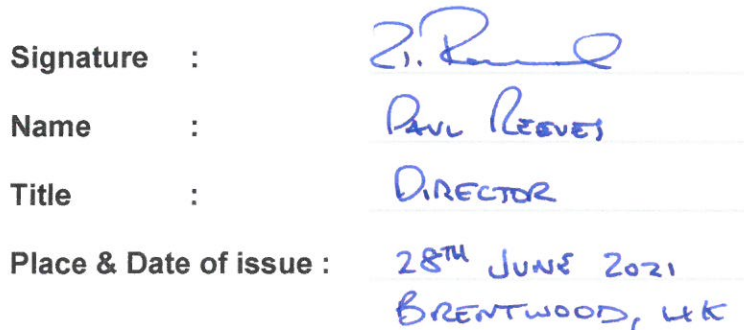 Signature :
Name : PAUL REEVES
Title : DIRECTOR
Place & Date of issue : 28TH JUNE 2021
BRENTWOOD, UK